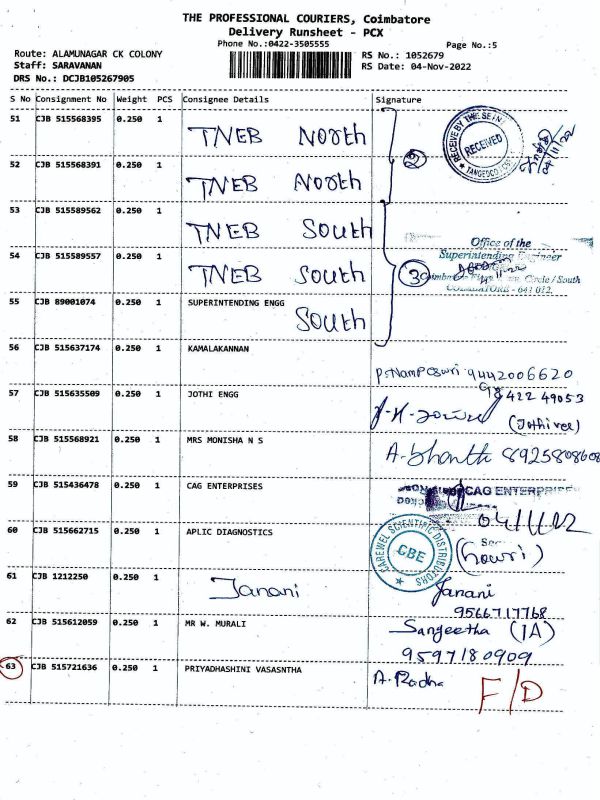 THE PROFESSIONAL COURIERS, Coimbatore
Delivery Runsheet - PCX
Phone No.:0422-3505555
Page No.:5
Route: ALAMUNAGAR CK COLONY
RS No.: 1052679
Staff: SARAVANAN
RS Date: 04-Nov-2022
DRS No.: DCJB105267905
S No Consignment No Weight PCS Consignee Details Signature
51 CJB 515568395 0.250 1 TNEB North
RECEIVED
52 CJB 515568391 0.250 1 TNEB North
2
04/11/22
53 CJB 515589562 0.250 1 TNEB South
Office of the
54 CJB 515589557 0.250 1 TNEB South
3
Superintending Engineer
Circle / South
COIMBATORE - 641 012.
55 CJB 89001074 0.250 1 SUPERINTENDING ENGG
South
56 CJB 515637174 0.250 1 KAMALAKANNAN
9442006620
57 CJB 515635509 0.250 1 JOTHI ENGG
98422 49053
58 CJB 515568921 0.250 1 MRS MONISHA N S
8925808608
59 CJB 515436478 0.250 1 CAG ENTERPRISES
CAG ENTERPRISES
60 CJB 515662715 0.250 1 APLIC DIAGNOSTICS
CAREWEL SCIENTIFIC DISTRIBUTORS
CBE
(Gowri)
61 CJB 1212250 0.250 1 Janani
Janani
9566717768
62 CJB 515612059 0.250 1 MR W. MURALI
Sangeetha (IA)
9597180909
63 CJB 515721636 0.250 1 PRIYADHASHINI VASASNTHA
A. Radha
F/D